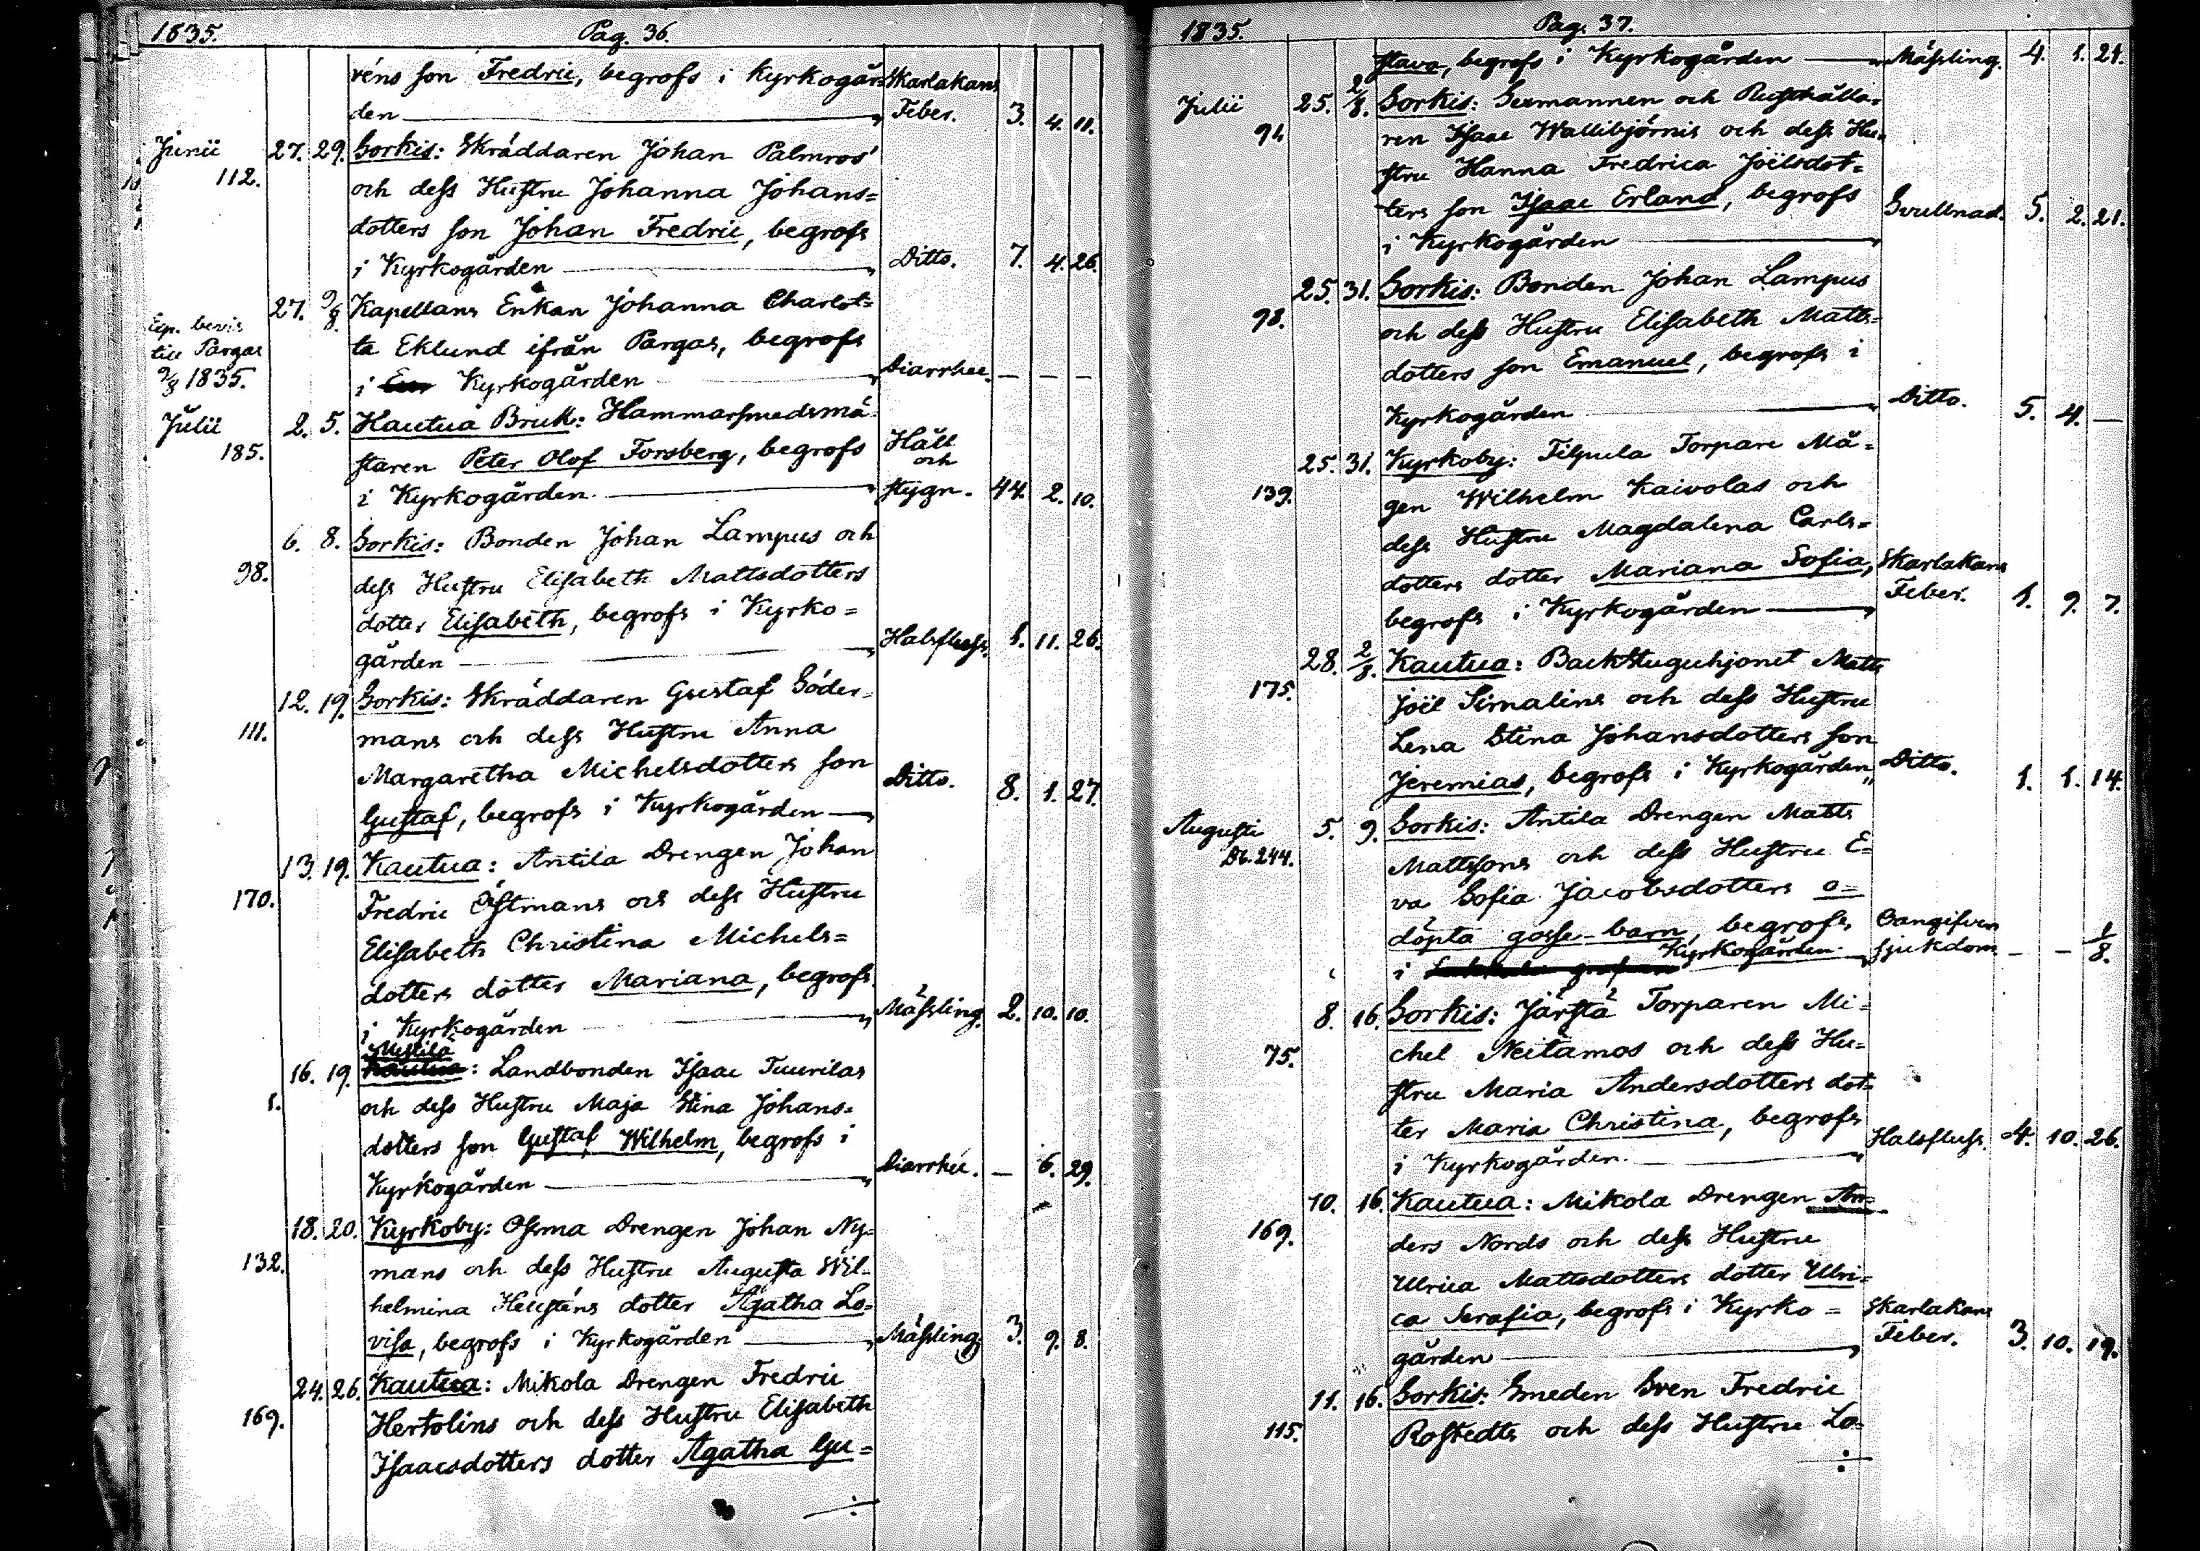 1835. Pag. 36.
réns son Fredric, begrofs i Kyrkogår- Skarlakans
den Feber. 3. 4. 11.
Junii 27. 29. Sorkis: Skräddaren Johan Palmros'
112. och dess Hustru Johanna Johans=
dotters son Johan Fredric, begrofs
i Kyrkogården Ditto. 7. 4. 26.
27. 9/8. Kapellans Enkan Johanna Charlot=
Exp. bevis
till Pargas ta Eklund ifrån Pargas, begrofs
9/8 1835. i Kyrkogården Diarrhee. — — —
Julii 2. 5. Kautua Bruk: Hammarsmedsmä-
185. staren Peter Olof Forsberg, begrofs Håll
och
i Kyrkogården. stygn. 44. 2. 10.
6. 8. Sorkis: Bonden Johan Lampus och
98. dess Hustru Elisabeth Mattsdotters
dotter Elisabeth, begrofs i Kyrko=
gården Halsfluss. 1. 11. 26.
12. 19. Sorkis: Skräddaren Gustaf Söder-
111. mans och dess Hustru Anna
Margaretha Michelsdotters son
Gustaf, begrofs i Kyrkogården Ditto. 8. 1. 27.
13. 19. Kautua: Antila Drengen Johan
170. Fredric Östmans och dess Hustru
Elisabeth Christina Michels=
dotters dotter Mariana, begrofs
i Kyrkogården Mässling. 2. 10. 10.
16. 19. Kautua: Landbonden Isaac Tuurilas
1. och dess Hustru Maja Stina Johans=
dotters son Gustaf Wilhelm, begrofs i
Kyrkogården Diarrhee. — 6. 29.
18. 20. Kyrkoby: Osma Drengen Johan Ny-
132. mans och dess Hustru Augusta Wil-
helmina Heusténs dotter Agatha Lo=
visa, begrofs i Kyrkogården Mässling. 3. 9. 8.
24. 26. Kautua: Mikola Drengen Fredric
169. Hertolins och dess Hustru Elisabeth
Isaacsdotters dotter Agatha Gu=
1835. Pag. 37.
stava, begrofs i Kyrkogården Mässling. 4. 1. 21.
Julii 25. 2/8. Sorkis: Sexmannen och Rusthålla-
91. ren Isaac Wallibjörnis och dess Hu-
stru Hanna Fredrica Joëlsdot=
ters son Isaac Erland, begrofs
i Kyrkogården Svullnad. 5. 2. 21.
25. 31. Sorkis: Bonden Johan Lampus
98. och dess Hustru Elisabeth Matts-
dotters son Emanuel, begrofs i
Kyrkogården Ditto. 5. 4. —
25. 31. Kyrkoby: Filpula Torpare Må=
139. gen Wilhelm Kaivolas och
dess Hustru Magdalena Carls=
dotters dotter Mariana Sofia, Skarlakans
begrofs i Kyrkogården Feber. 1. 9. 7.
28. 2/8. Kautua: Backstuguhjonet Matts
175. Joël Simalins och dess Hustru
Lena Stina Johansdotters son
Jeremias, begrofs i Kyrkogården Ditto. 1. 1. 14.
Augusti 5. 9. Sorkis: Antila Drengen Matts
Db. 244. Mattssons och dess Hustru E=
va Sofia Jacobsdotters o=
döpta gosse-barn, begrofs Oangifven
i Kyrkogården. sjukdom — — 1/8.
8. 16. Sorkis: Järstä Torparen Mi=
75. chel Neitamos och dess Hu=
stru Maria Andersdotters dot-
ter Maria Christina, begrofs
i Kyrkogården. Halsfluss. 4. 10. 26.
10. 16. Kautua: Mikola Drengen An-
169. ders Nords och dess Hustru
Ulrica Mattsdotters dotter Ulri=
ca Serafia, begrofs i Kyrko= Skarlakans
gården Feber. 3. 10. 19.
11. 16. Sorkis: Smeden Sven Fredric
115. Rostedts och dess Hustru Lo-